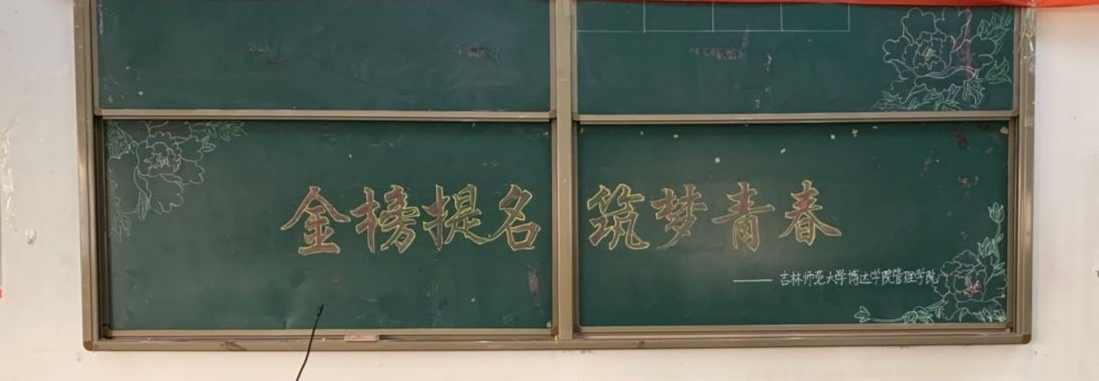 金榜提名 筑梦青春
——吉林师范大学博达学院管理学院